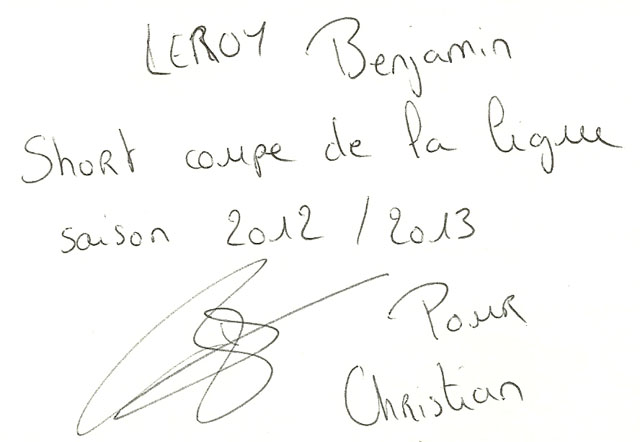 LEROY Benjamin
Short coupe de la ligue
saison 2012 / 2013
Pour
Christian